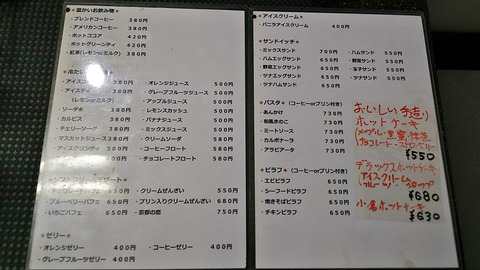 ★温かいお飲み物★
・ブレンドコーヒー 380円
・アメリカンコーヒー 380円
・ホットココア 420円
・ホットグリンティ 420円
・紅茶(レモンorミルク) 380円
★冷たい
・アイスコ
・アイスティ
(レモンorミルク) 380円
・ソーダ水 380円
・カルピス 380円
・チェリーソーダ 380円
・マスカットジュース 380円
・アイスグリンティ
・オレンジジュース 500円
・グレープフルーツジュース 500円
・アップルジュース 500円
・レモンスカッシュ 500円
・バナナジュース 500円
・クリームソーダ 580円
・コーヒーフロート 580円
・チョコレートフロート 580円
ソフトクリームデザート
パフェ
・ブルーベリーパフェ 650円
・いちごパフェ 650円
・クリームぜんざい 550円
・プリン入りクリームぜんざい 680円
・京都の恋 750円
★ゼリー★
・オレンジゼリー 400円
・グレープフルーツゼリー 400円
・コーヒーゼリー 400円
★アイスクリーム★
・バニラアイスクリーム 400円
★サンドイッチ★
・ミックスサンド 700円
・ハムエッグサンド 650円
・野菜エッグサンド 650円
・ツナエッグサンド 650円
・ツナハムサンド 650円
・ハムサンド 550円
・野菜サンド 550円
・玉子サンド 550円
・ツナサンド 550円
★パスタ★ (コーヒーorプリン付き)
・あんかけ 730円
・和風きのこ 730円
・ミートソース 730円
・カルボナーラ 730円
・アラビアータ 730円
★ピラフ★ (コーヒーorプリン付き)
・エビピラフ 650円
・シーフードピラフ 650円
・焼きそばピラフ 650円
・チキンピラフ 650円
おいしい手造り
ホットケーキ
メープル・黒蜜・抹茶
チョコレート・ストロベリー
¥550
デラックスホットケーキ
(アイスクリーム
フルーツ・
¥680
小倉ホットケーキ
¥630